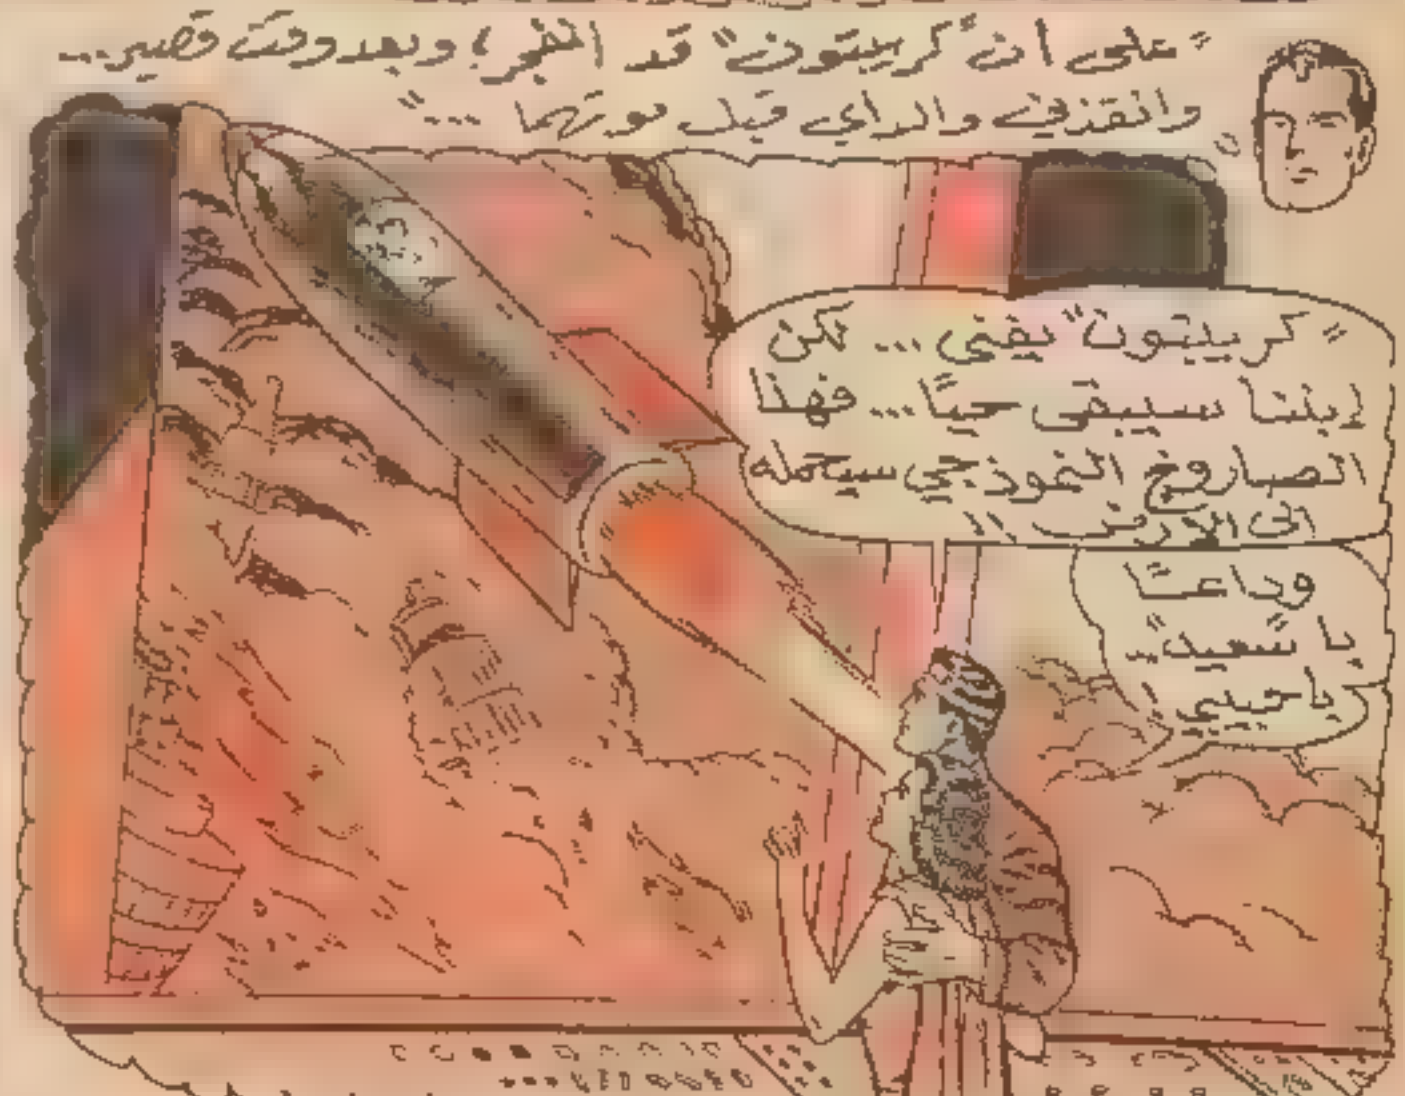 "على ان "كريبتون" قد انفجر! وبعد وقت قصير...
وانقذني والداي قبل موتهما ..."
"كريبتون" يفنى ... لكن
إبننا سيبقى حيًّا... فهذا
الصاروخ النموذجي سيحمله
الى الارض !!
وداعــًا
يا "سعيد"..
يا حبيبي!